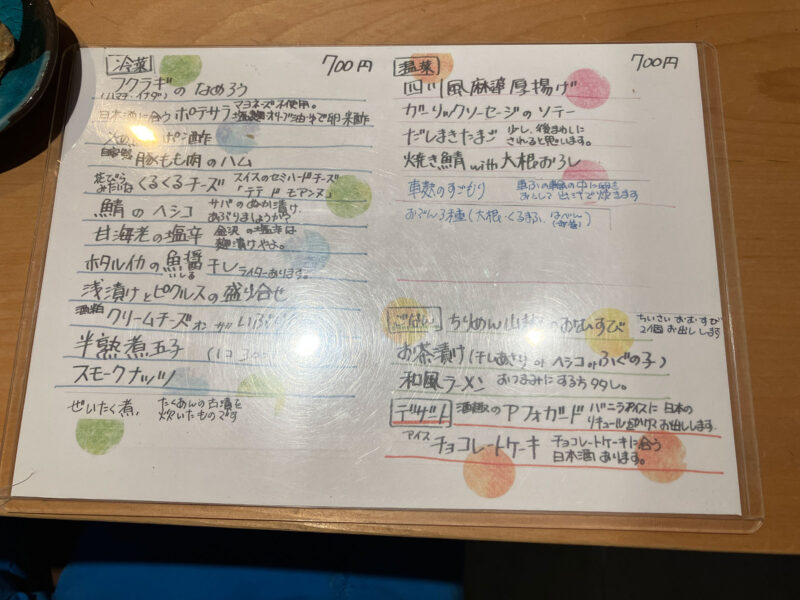 冷菜 700円
フクラギの なめろう
(ハマチ・イナダ)
日本酒に合う ポテサラ マヨネーズ不使用。
塩麹 オリーブ油 で 米酢
ポン酢
自家製 豚もも肉のハム
花びらみたいな くるくるチーズ スイスのセミハードチーズ
「テテ ド モアンヌ」
鯖の ヘシコ サバの ぬか漬け
あぶりましょうか?
甘海老の塩辛 金沢の塩辛は
麹漬けやよ。
ホタルイカの魚醤干し ライターあります。
いしる
浅漬けとピクルスの盛り合せ
酒粕 クリームチーズ オン ザ いぶり
半熟煮玉子 (1コ
スモークナッツ
ぜいたく煮, たくあんの古漬を
炊いたものです
温菜 700円
四川風麻辣厚揚げ
ガーリックソーセージの ソテー
だしまきたまご 少し、後まわしに
されると思います。
焼き鯖 with 大根おろし
車麩のすごもり 車ふの の中に卵を
おとして 出汁で焼きます
おでん3種(大根・くるまふ、はべん)
ごはん ちりめん山椒のおむすび ちいさい おむすび
2個お出しします
お茶漬け(干しあさり or ヘシコ orふぐの子)
和風ラーメン おつまみにするも〆タシ。
デザート 酒粕のアフォガード バニラアイスに 日本の
リキュールをかけて お出しします.
アイス
チョコレートケーキ チョコレートケーキに合う
日本酒あります。